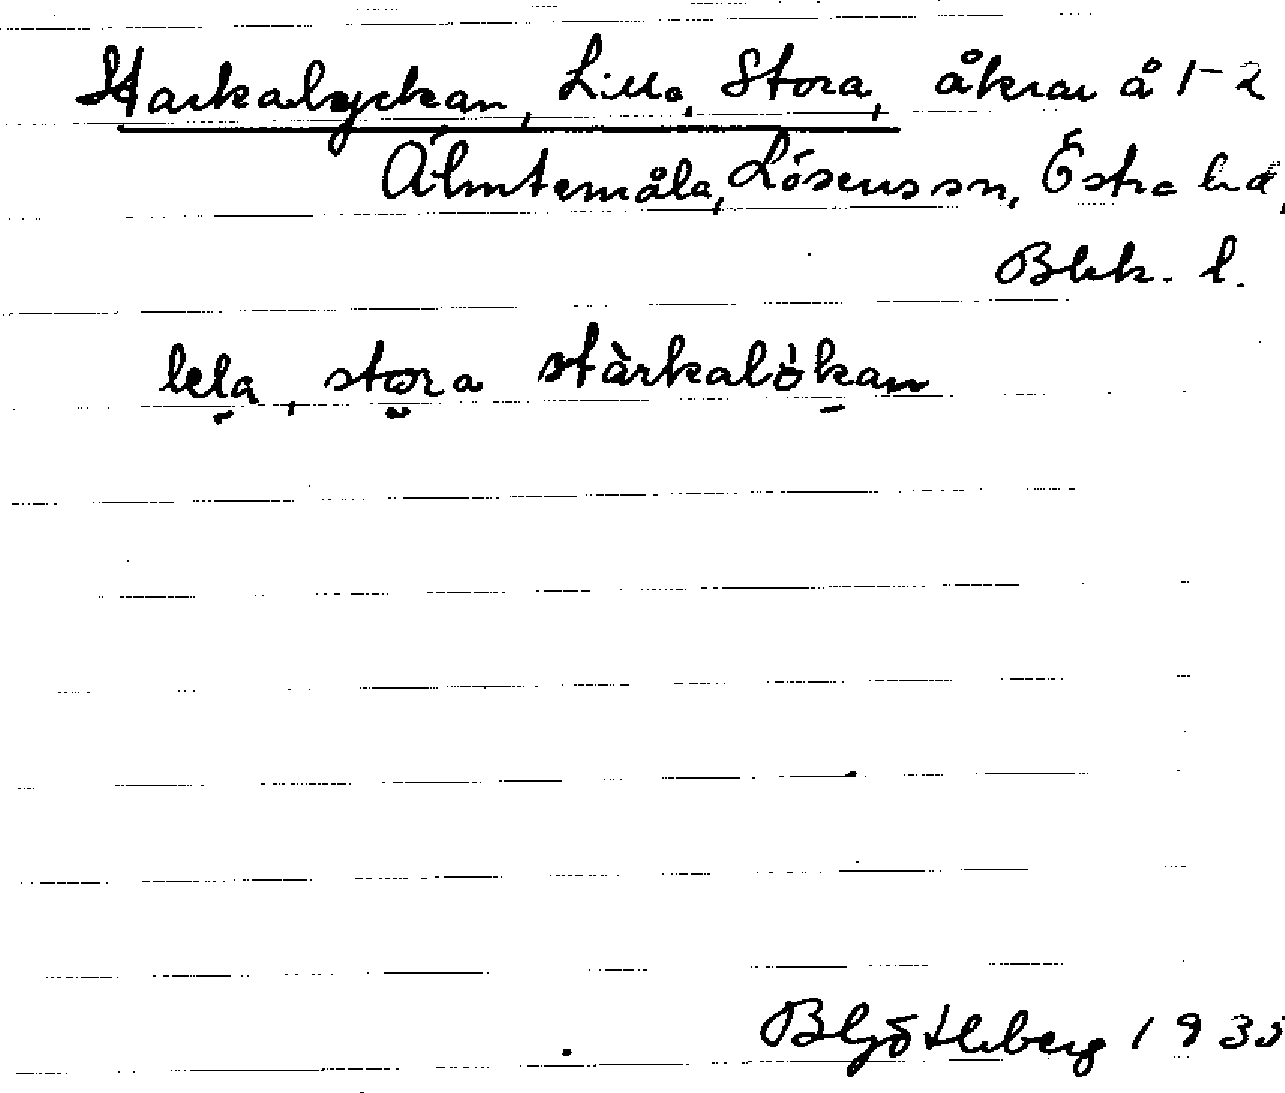 Starkalyckan, Lilla, Stora, åkrar å 1-2
Älmtemåla, Lösens sn, Östra hd,
Blek. l.
lela, stora stàrkalökan
B Götlberg 1935